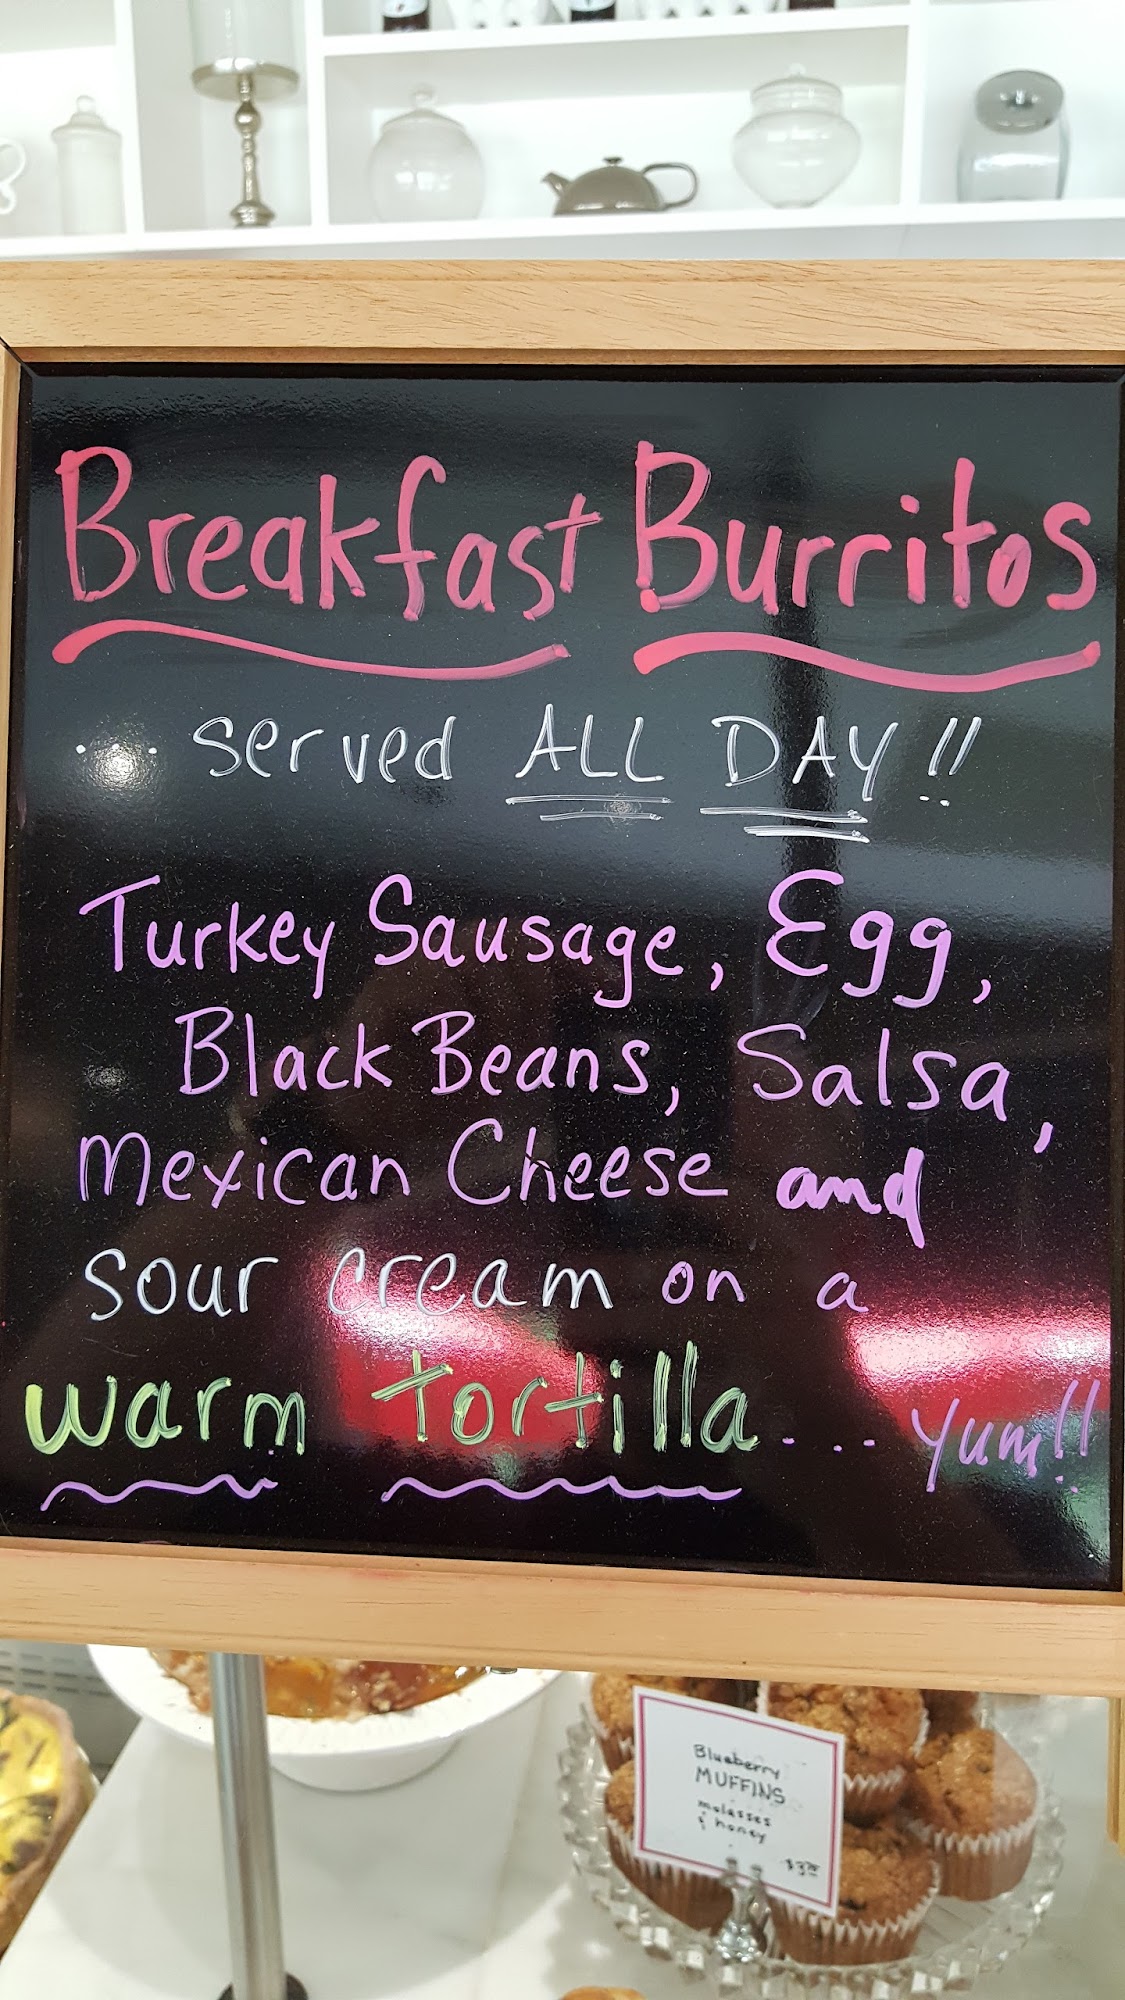 Breakfast Burritos
... served ALL DAY!!
Turkey Sausage, Egg,
Black Beans, Salsa,
Mexican Cheese and
sour cream on a
warm tortilla.... yum!!
Blueberry
MUFFINS
molasses
& honey